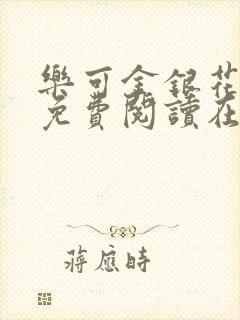 樂可金銀花
免費閱讀在
蔣應時